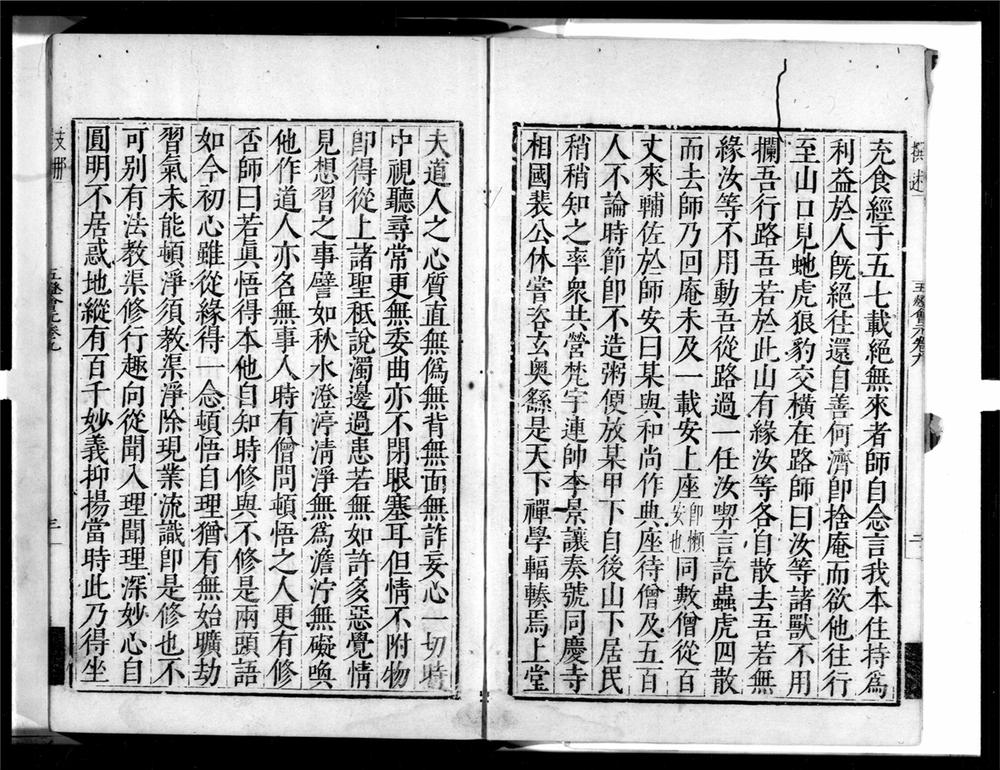 充食經于五七載絕無來者師自念言我本住持爲
利益於人旣絕往還自善何濟卽捨庵而欲他往行
至山口見虵虎狼豹交橫在路師曰汝等諸獸不用
攔吾行路吾若於此山有緣汝等各自散去吾若無
緣汝等不用動吾從路過一任汝喫言訖蟲虎四散
而去師乃回庵未及一載安上座卽懶安也同數僧從百
丈來輔佐於師安曰某與和尚作典座待僧及五百
人不論時節卽不造粥便放某甲下自後山下居民
稍稍知之率衆共營梵宇連帥李景讓奏號同慶寺
相國裴公休嘗咨玄奧繇是天下禪學輻輳焉上堂
夫道人之心質直無僞無背無面無詐妄心一切時
中視聽尋常更無委曲亦不閉眼塞耳但情不附物
卽得從上諸聖秖說濁邊過患若無如許多惡覺情
見想習之事譬如秋水澄渟清淨無爲澹泞無礙喚
他作道人亦名無事人時有僧問頓悟之人更有修
否師曰若眞悟得本他自知時修與不修是兩頭語
如今初心雖從緣得一念頓悟自理猶有無始曠劫
習氣未能頓淨須教渠淨除現業流識卽是修也不
可别有法教渠修行趣向從聞入理聞理深妙心自
圓明不居惑地縱有百千妙義抑揚當時此乃得坐
五燈會元卷九
三
二